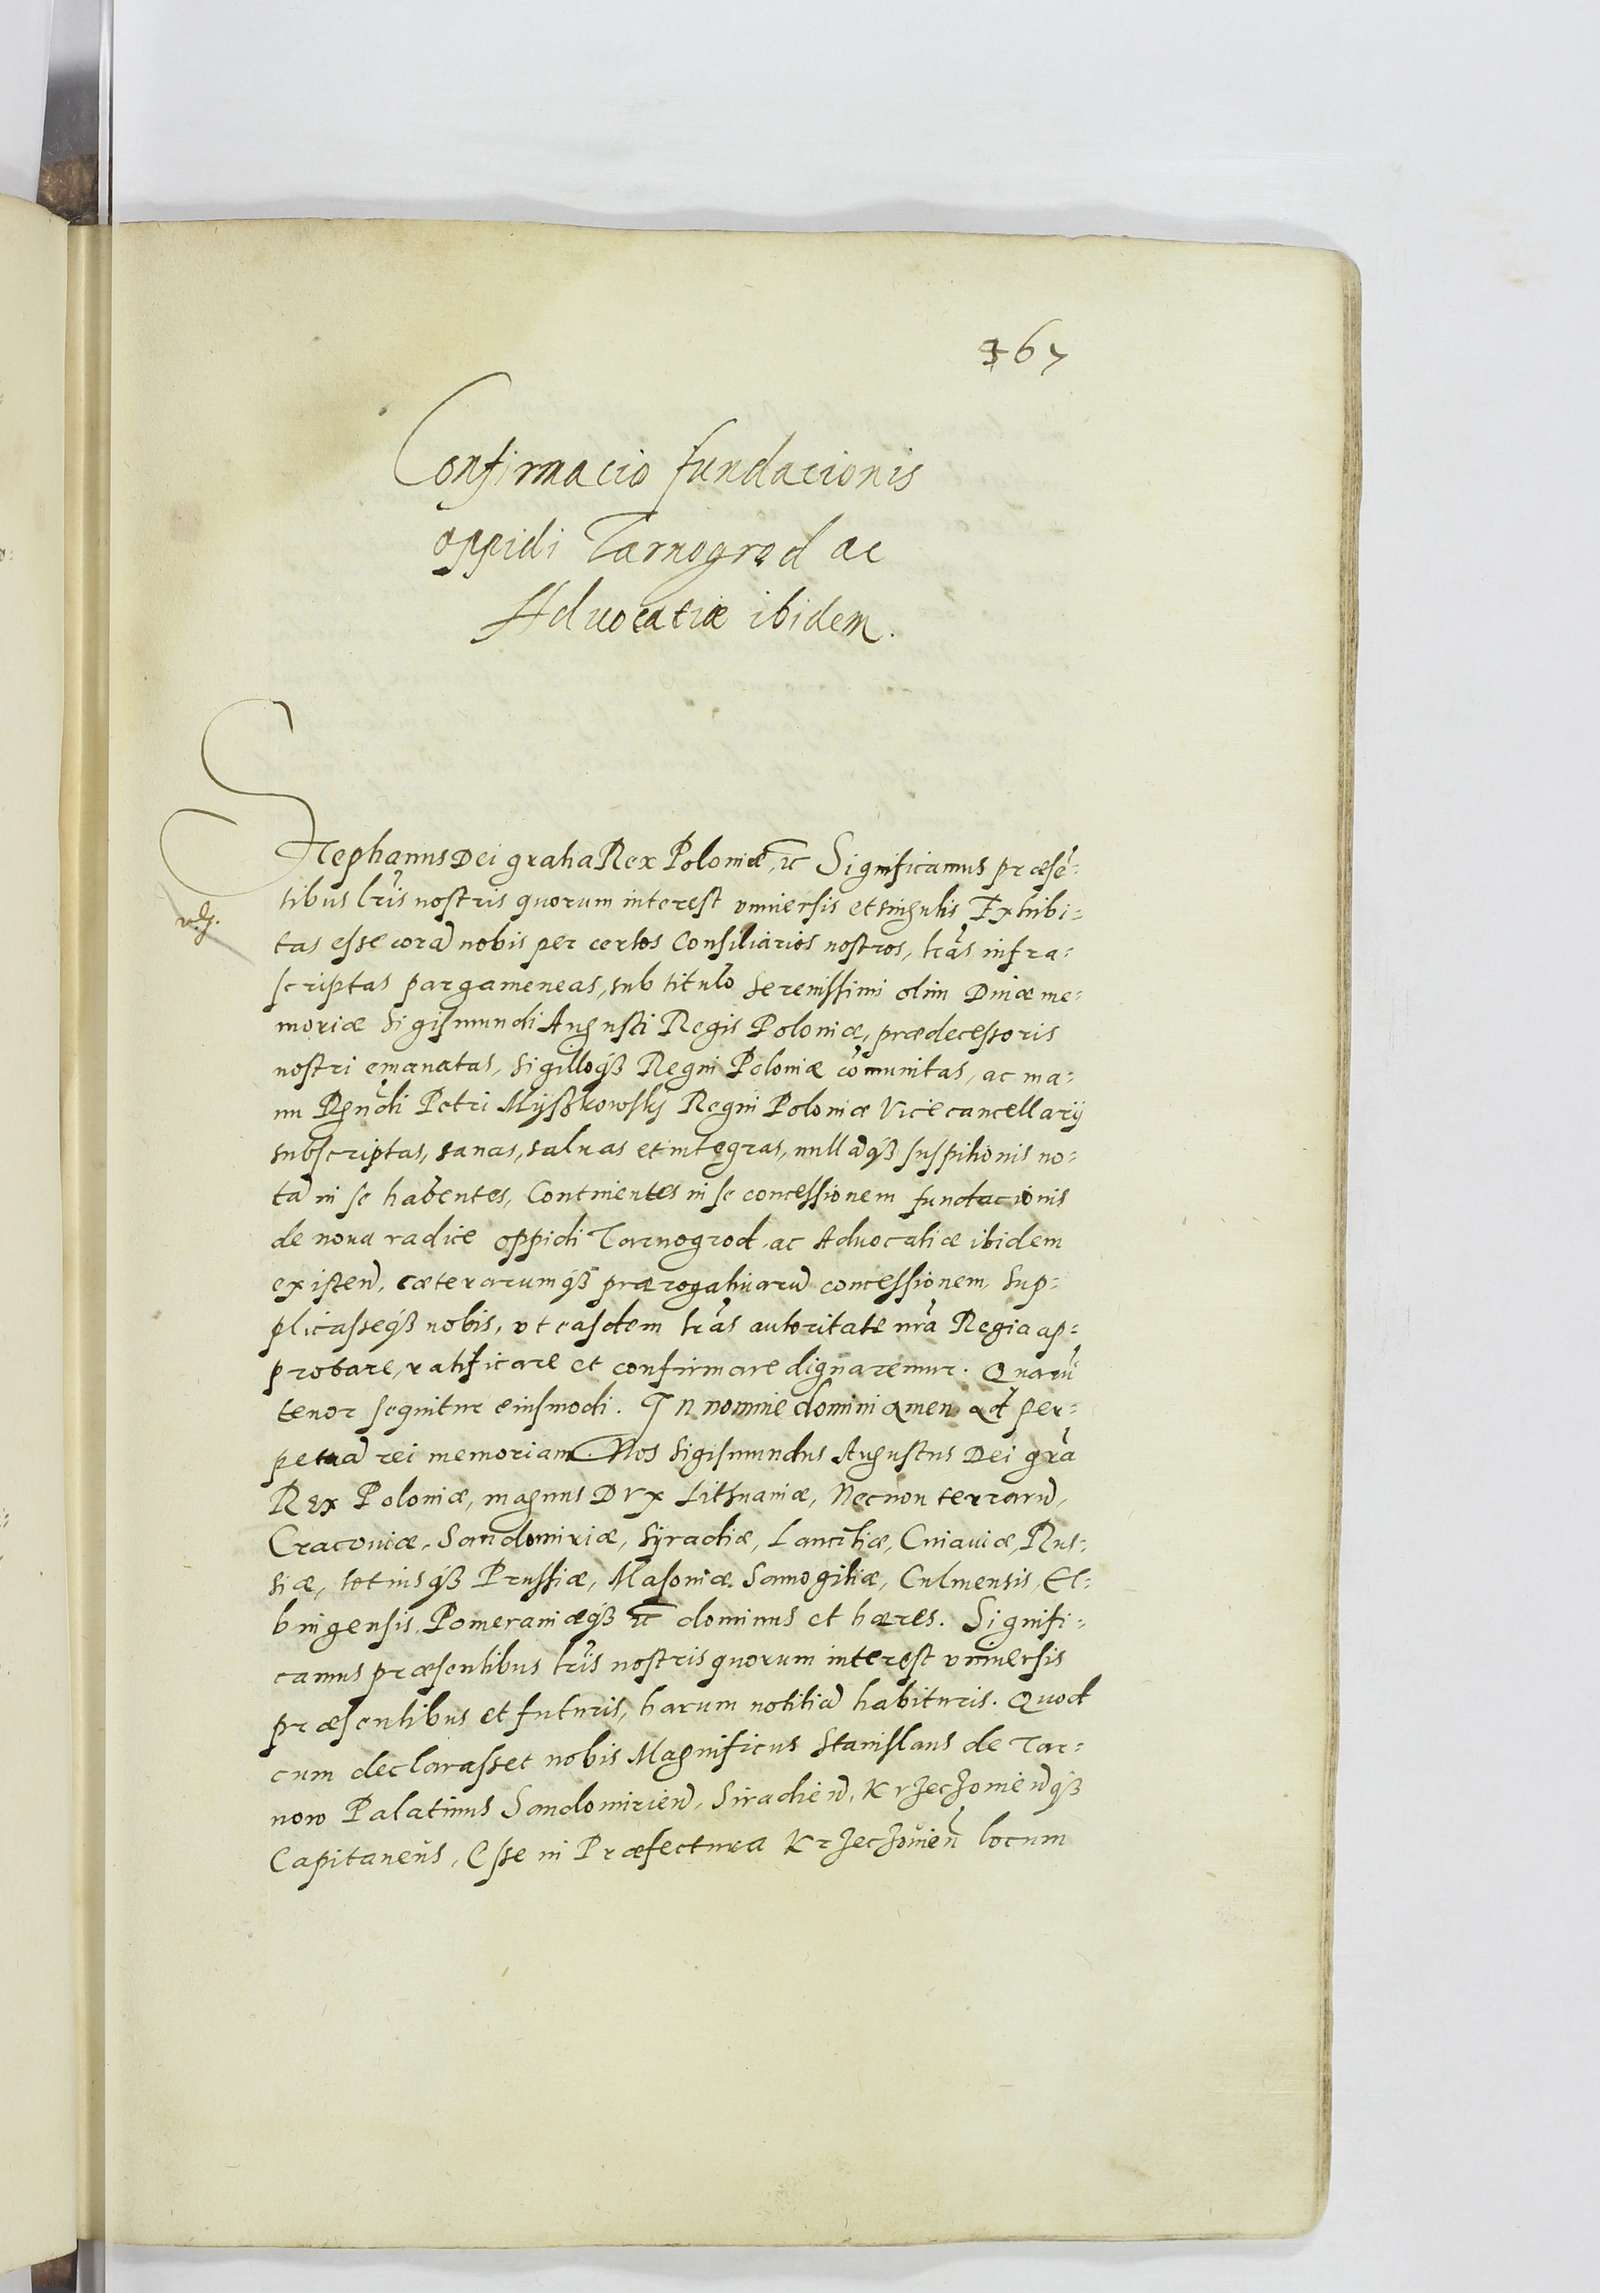 367
Confirmacio fundacionis
oppidi Tarnogrod ac
Advocatiæ ibidem.
Stephanus Dei gratia Rex Poloniæ, &c Significamus præsē-
tibus lr̃is nostris quorum interest vniuersis et singulis Exhibi-
tas esse corā nobis per certos Consiliarios nostros, lr̃as infra-
scriptas pargameneas, sub titulo Serenissimi olim Diuæ me-
moriæ Sigismundi Augusti Regis Poloniæ, prædecessoris
nostri emanatas, Sigilloq3 Regni Poloniæ cõmunitas, ac ma-
nu Rgñdi Petri Myszkowskj Regni Poloniæ Vicecancellarij
subscriptas, sanas, saluas et integras, nullāq3 suspitionis no-
tā in se habentes, Continentes in se concessionem fundacionis
de noua radice oppidi Tarnogrod, ac Advocatiæ ibidem
existeñ, cæterarumq3 prærogatiuarū concessionem, Sup-
plicasseq3 nobis, vt easdem lr̃as autoritate nr̃a Regia ap-
probare, ratificare et confirmare dignaremur. Quarū
tenor sequitur eiusmodi. In nomine domini amen ad per-
petuā rei memoriam. Nos Sigismundus Augustus Dei gr̃a
Rex Poloniæ, magnus Dvx Lithuaniæ, Necnon terrarū,
Cracouiæ, Sandomiriæ, Syradiæ, Lanciciæ, Cuiauiæ, Rus-
siæ, totiusq3 Prussiæ, Masouiæ, Samogitiæ, Culmensis, El-
bingensis, Pomeraniæq3 &c dominus et hæres. Signifi-
camus præsentibus lr̃is nostris quorum interest vniuersis
præsentibus et futuris, harum notitiā habituris. Quod
cum declarasset nobis Magnificus Stanislaus de Tar-
now Palatinus Sandomirieñ, Siradieñ, Krzeczowieñq3
Capitaneus, Esse in Præfectura Krzeczowieñ locum